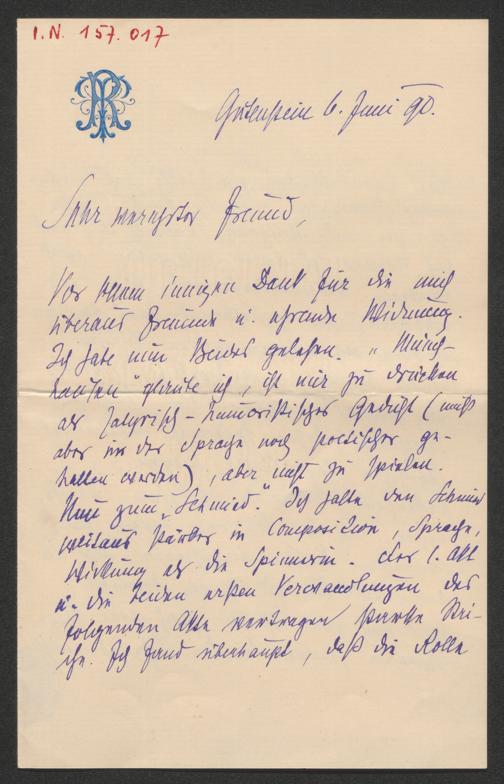 I.N. 157.017
Gutenstein 6. Juni 90.
Sehr werthester Freund,
Vor allem innigen Dank für die mich
überaus freuende u. ehrende Widmung.
Ich habe nun Beides gelesen. „Münch-
hausen" glaube ich, ist nur zu drucken
als satyrisch-humoristisches Gedicht (muß
aber in der Sprache noch poetischer ge-
halten werden), aber nicht zu spielen.
Nun zum „Schmied." Ich halte den Schmied
weitaus stärker in Composition, Sprache,
Wirkung als die Spinnerin. Der 1. Akt
u. die beiden ersten Verwandlungen des
folgenden Akte vertragen starke Stri-
che. Ich fand überhaupt, daß die Rolle